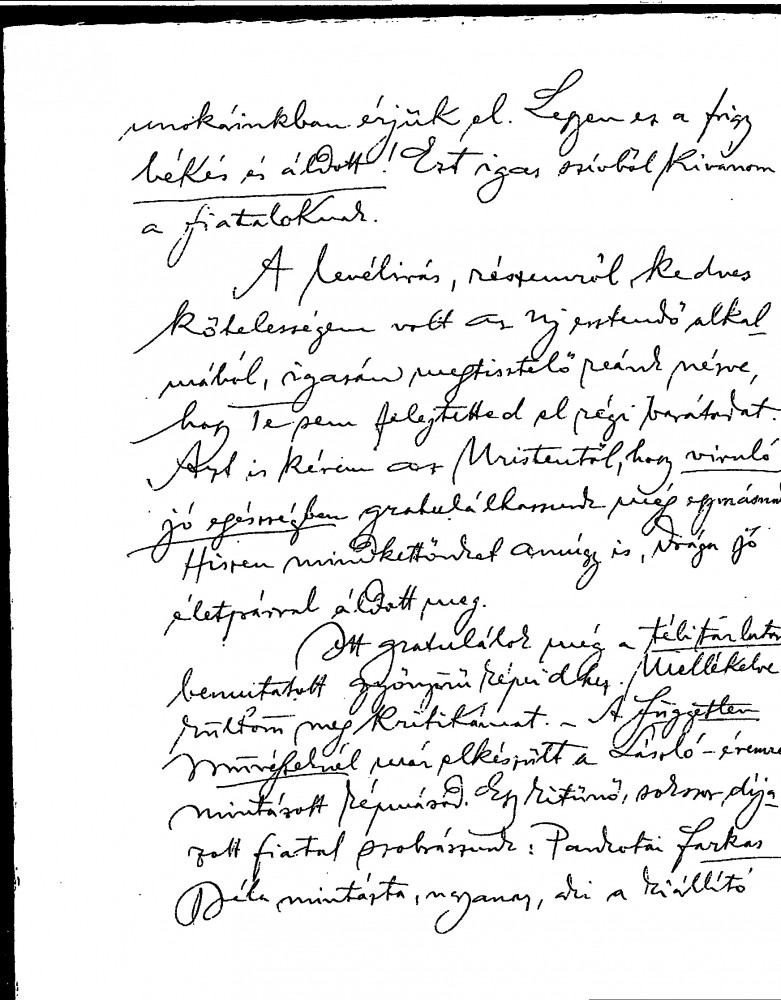 unokáinkban érjük el. Legyen ez a frigy
békés és áldott! Ezt igaz szívből kívánom
a fiataloknak.
A levélirás, részemről, kedves
kötelességem volt az új esztendő alkal-
mából, igazán megtisztelő reánk nézve,
hogy Te sem felejtetted el régi barátodat.
Azt is kérem az Úristentől, hogy viruló
jó egészségben gratulálhassunk még egymásnak
Hiszen mindkettőnket amúgy is, drága jó
életpárral áldott meg.
Itt gratulálok még a téli tárlaton
bemutatott gyönyörű képeidhez. Mellékelve
küldöm meg kritikámat. - A Független
művészeknél már elkészült a László-éremre
mintázott képmásod. Egy kitünő, sokszor díja-
zott fiatal szobrászunk: Pankotai Farkas
Béla mintázta, ugyanaz, aki a kiállító